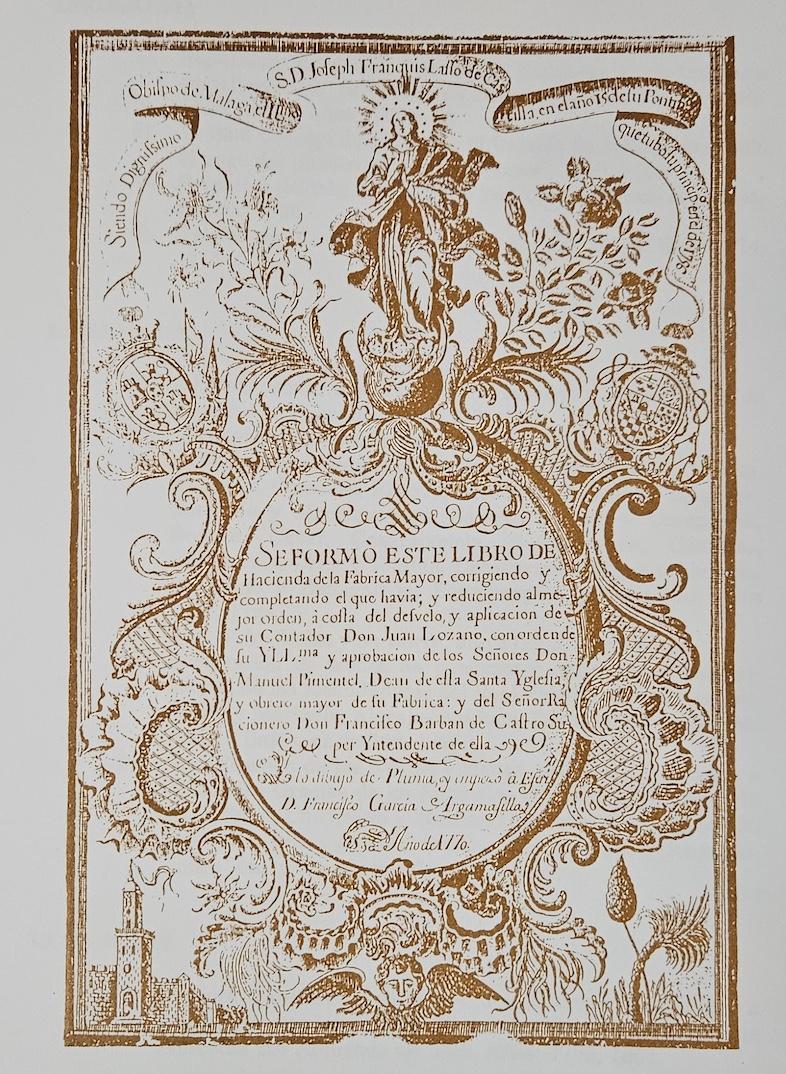 Siendo Dignissimo
Obispo de Malaga el Illmo
S.D. Joseph Franquis Lasso de Cas
tilla, en el año 15 de su Pontifi
SE FORMÒ ESTE LIBRO DE
Hacienda de la Fabrica Mayor, corrigiendo y
completando el que havia; y reduciendo al me-
jor orden, à costa del desvelo, y aplicacion de
su Contador Don Juan Lozano, con orden de
su YLL.ma y aprobacion de los Señores Don
Manuel Pimentel, Dean de esta Santa Yglesia,
y obrero mayor de su Fabrica: y del Señor Ra
cionero Don Francisco Barban de Castro Su
per Yntendente de ella
lo dibujó de Pluma, y empezó à Escri
D. Francisco Garcia Argamasilla
Año de 1770.